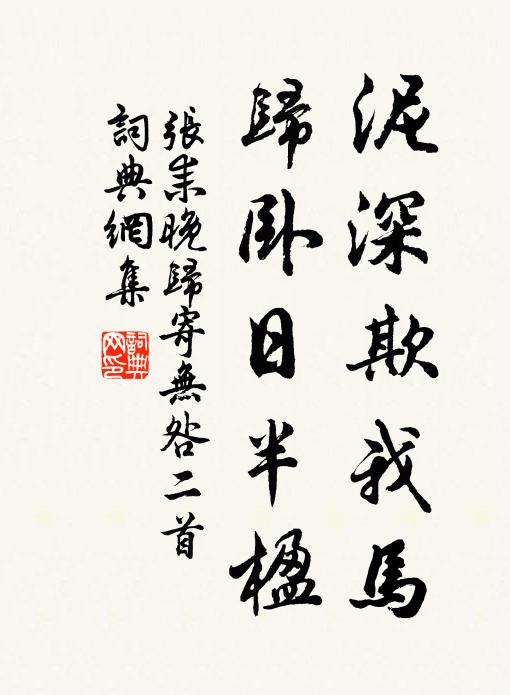 泥深欺我馬
歸卧日半楹
張耒晚歸寄無咎二首
詞典網集
詞典網印